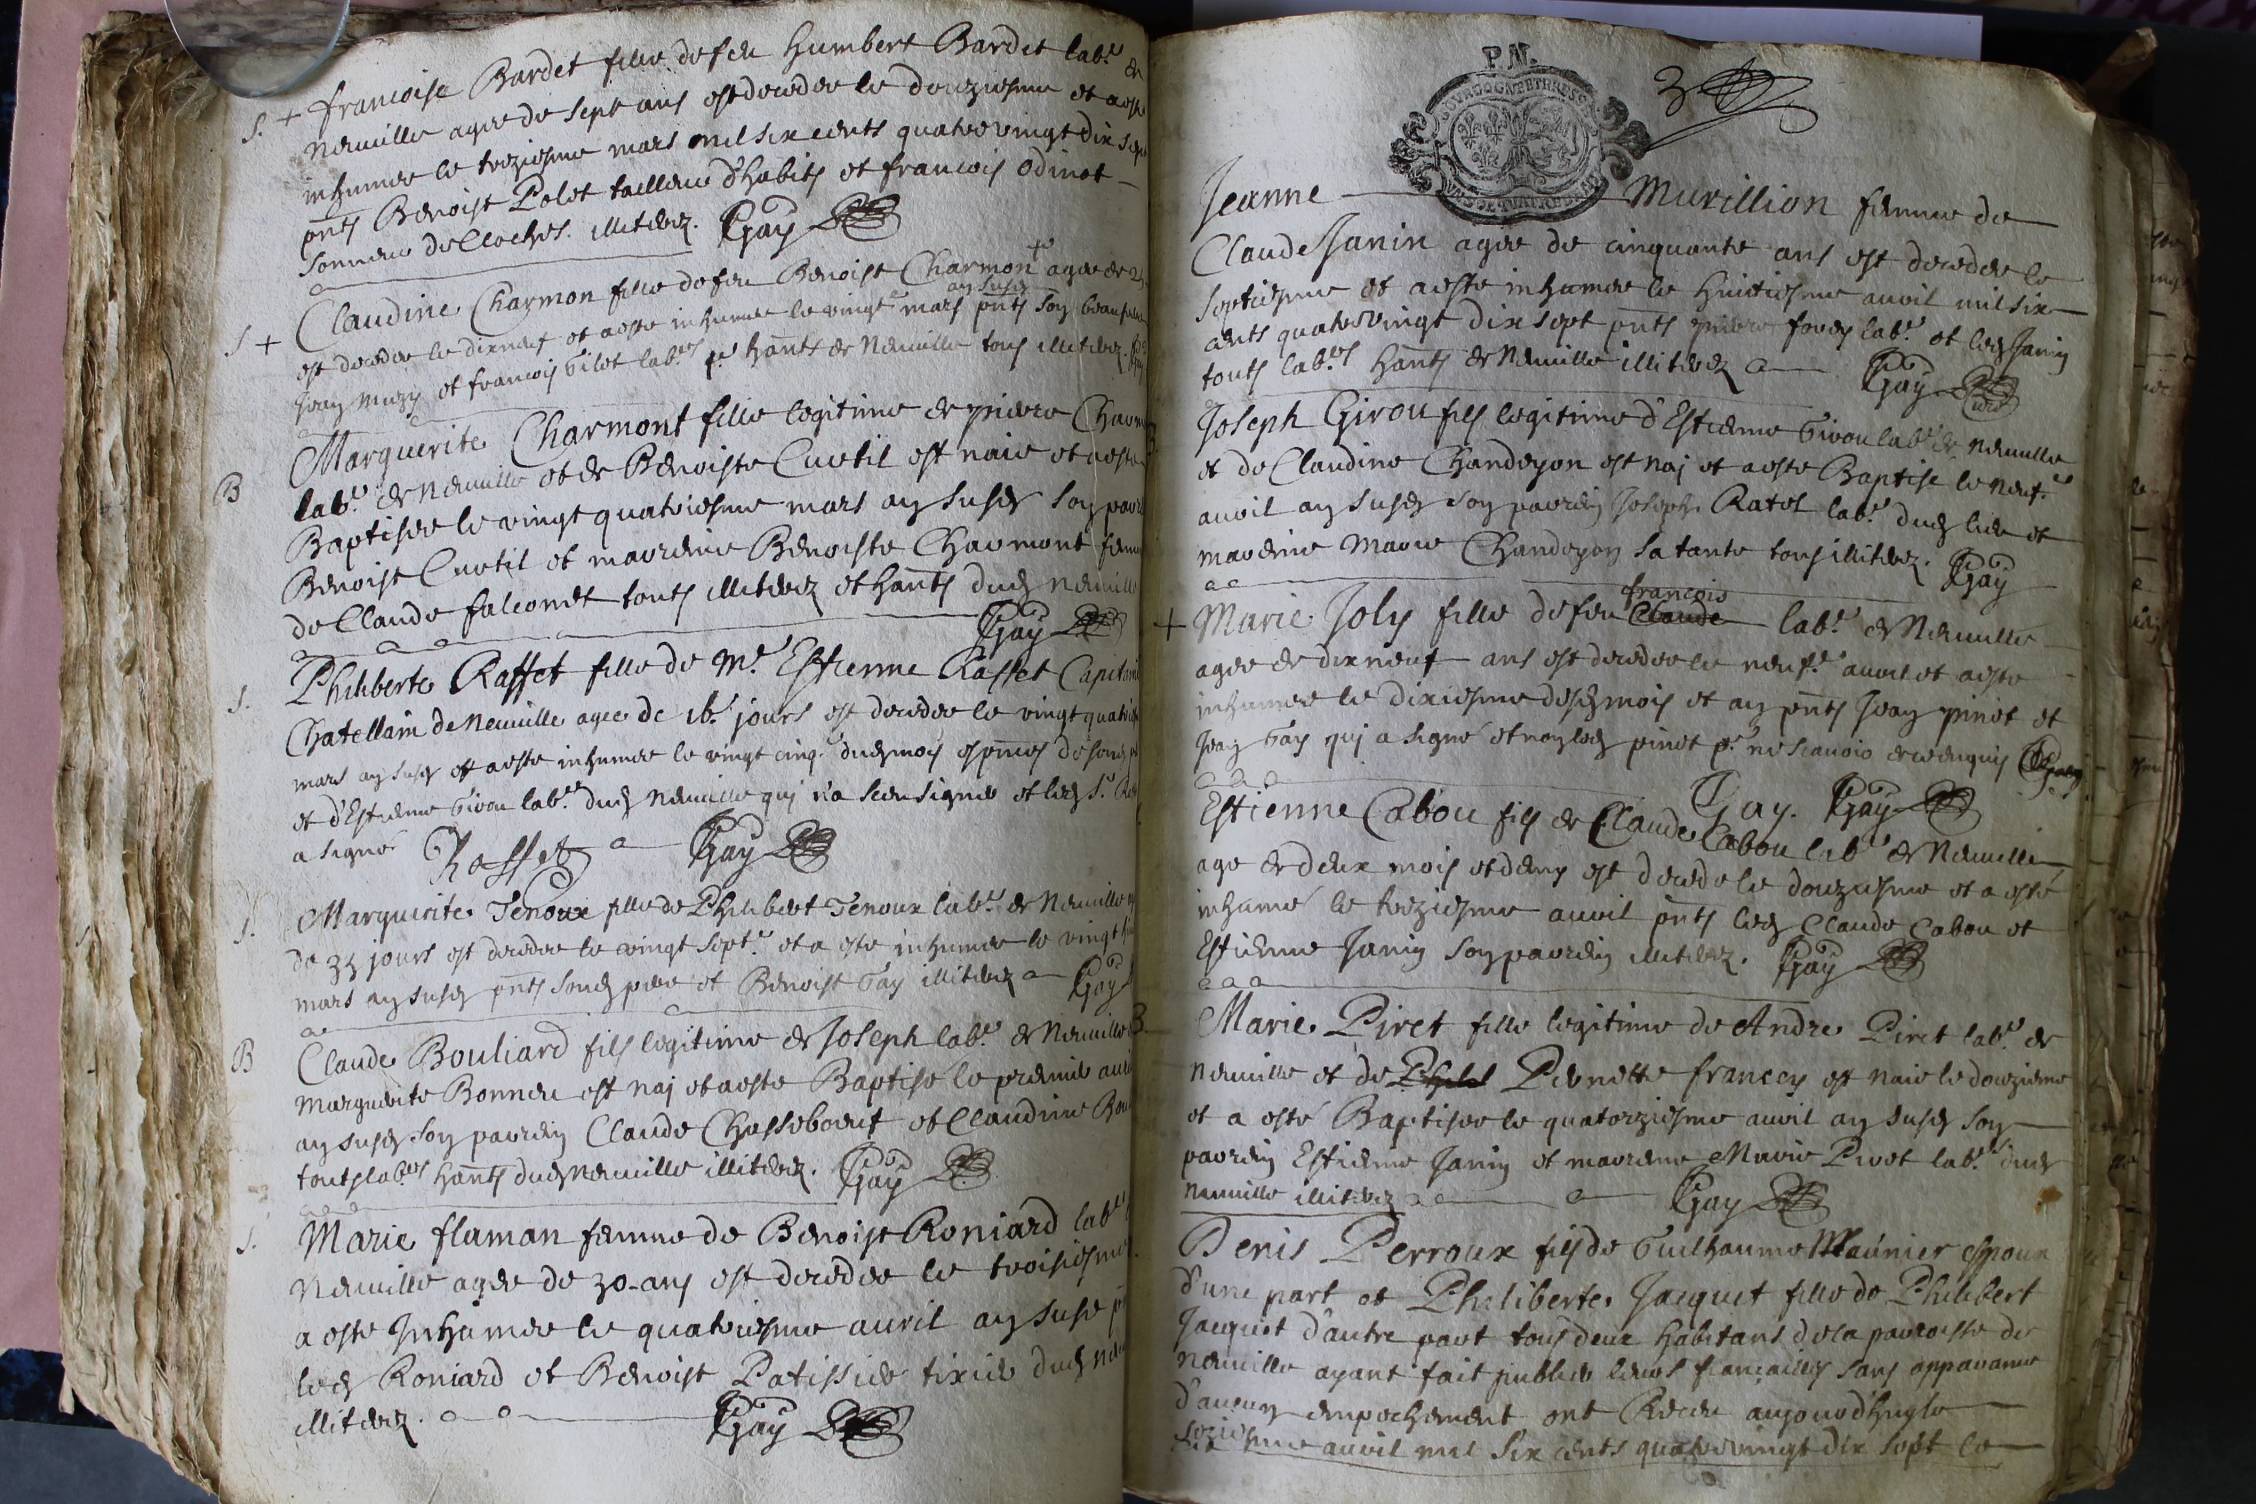 S. + francoise Bardet fille de feu humbert Bardet lab.r de
neuville agee de sept ans est decedee le douziesme et a esté
inhumee le treziesme mars mil six cents quatre vingt dix sept
pnts Benoist Polet tailleur d'habits et francois odinot
sonneur de Cloches. illiterez. Gay
S + Claudine Charmon fille de feu Benoist Charmon agee de
an susd
est decedee le dixneuf et a esté inhumee le vingt.e mars pnts son beau
Jean muzy et francois Gilet lab.rs p.r hants de Neuville tous illiterez. Gay
Marguerite Charmont fille legitime de pierre
B lab.r de neuville et de Benoiste Curtil est naie et a esté
Baptisee le vingt quatriesme mars an susd son
Benoist Curtil et marreine Benoiste Charmont
de Claude falconet touts illiterez et hants dud neuville
Gay
S. Philiberte Raffet fille de M.e Estienne Raffet Capitaine
Chatellain de Neuville agee de 16. jours est decedee le vingt quatrie
mars an susd et a esté inhumee le vingt cinq.e dud mois
et d'Estienne Girou lab.r dud Neuville qui n'a sceu signer et led S.r
a signé Raffet Gay
S. Marguerite Tenoux fille de Philibert Tenoux lab.r de Neuville
de 35 jours est decedee le vingt sept.e et a esté inhumee le vingt
mars an susd pnts sond pere et Benoist Gay illiterez Gay
B Claude Bouliard fils legitime de Joseph lab.r de Neuville
Marguerite Bonneu est naj et a esté Baptisé le premier
an susd son parrein Claude Chasseboeuf et Claudine
touts lab.rs hants dud Neuville illiterez. Gay
S. Marie flaman femme de Benoist Roniard lab.r
Neuville agee de 30 ans est decedee le troisiesme
a esté Inhumee le quatriesme avril an susd
led Roniard et Benoist Patissier tixier dud
illiterez. Gay
P.N.
3
Jeanne Murillion femme de
Claude Janin agee de cinquante ans est decedee le
septiesme et a esté inhumee le huitiesme avril mil six
cents quatre vingt dix sept pnts pierre lab.r et led Janin
touts lab.rs hants de Neuville illiterez Gay
curé
Joseph Girou fils legitime d'Estienne Girou lab.r de neuville
B et de Claudine Chandeyon est naj et a esté Baptisé le neuf.e
avril an susd son parrein Joseph Ratet lab.r dud lieu et
mareine Marie Chandeyon sa tante tous illiterez. Gay
francois
+ Marie Joly fille de feu Claude lab.r de Neuville
agee de dix neuf ans est decedee le neuf.e avril et a esté
inhumee le dixiesme desd mois et an pnts Jean pinet et
Jean Gay qui a signé et non led pinet p.r ne scavoir de ce enquis
Gay. Gay
Estienne Cabou fils de Claude Cabou lab.r de Neuville
age de deux mois et demy est decedé le douziesme et a esté
inhumé le treziesme avril pnts led Claude Cabou et
Estienne Janin son parrein illiterez. Gay
B Marie Piret fille legitime de Andre Piret lab.r de
Neuville et de Pernette francey est naie le douzieme
et a esté Baptisee le quatorziesme avril an susd son
parrein Estienne Janin et marreine Marie Piret lab.r dud
Neuville illiterez Gay
Denis Perroux fils de Guilhaume Meunier espoux
d'une part et Philiberte Jacquet fille de Philibert
Jacquet d'autre part tous deux habitans de la parroisse de
Neuville ayant fait publier leurs fiancailles sans apparance
d'aucun empechement ont Receu aujourd'huy le
seziesme avril mil six cents quatre vingt dix sept le